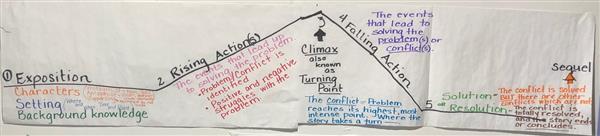 ① Exposition
Characters
Setting
Background knowledge
2 Rising Action(s)
The events that lead up
to solving the problem
• Problem/Conflict is
identified
• Positive and negative
struggles with the
problem
Climax
also
known as
Turning
Point
The Conflict - Problem
reaches its highest, most
intense point. Where the
story takes a turn
4 Falling Action
The events
that lead to
solving the
problem(s) or
conflict(s).
5
Solution-
Resolution-
Sequel
The conflict is solved
but there are other
conflicts which are not
The conflict is
totally resolved,
and the story ends
or concludes.